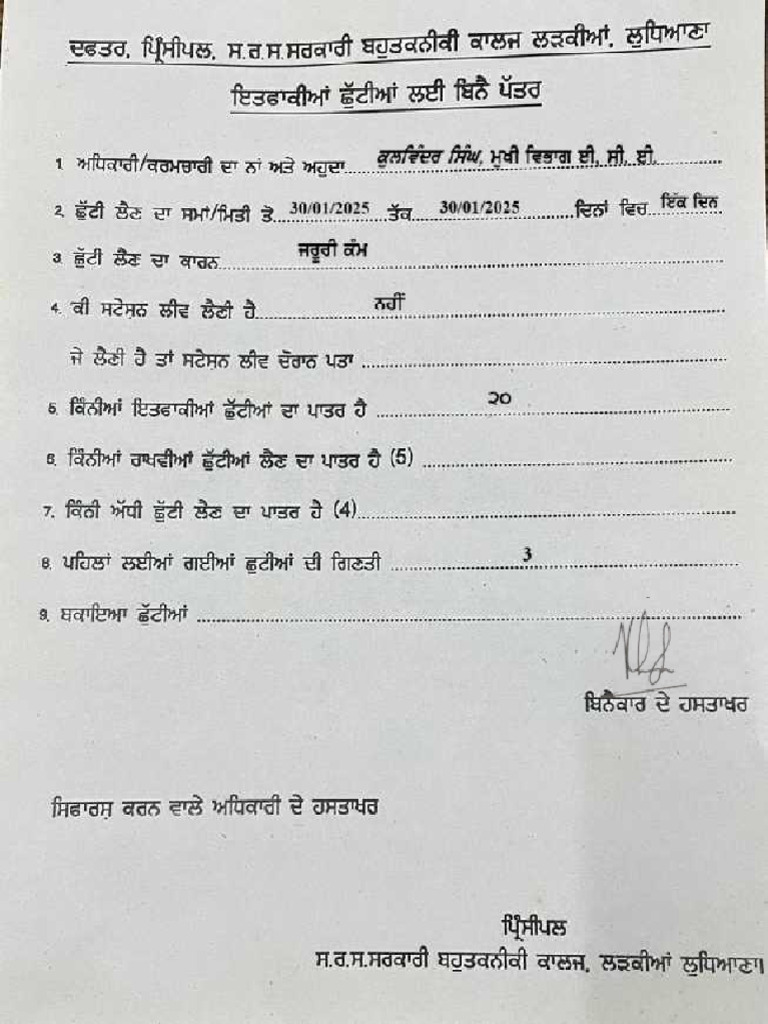 ਦਫਤਰ, ਪ੍ਰਿੰਸੀਪਲ, ਸ.ਰ.ਸ.ਸਰਕਾਰੀ ਬਹੁਤਕਨੀਕੀ ਕਾਲਜ ਲੜਕੀਆਂ, ਲੁਧਿਆਣਾ
ਇਤਫਾਕੀਆਂ ਛੁੱਟੀਆਂ ਲਈ ਬਿਨੈ ਪੱਤਰ
1. ਅਧਿਕਾਰੀ/ਕਰਮਚਾਰੀ ਦਾ ਨਾਂ ਅਤੇ ਅਹੁਦਾ.....ਕੁਲਵਿੰਦਰ ਸਿੰਘ, ਮੁਖੀ ਵਿਭਾਗ ਈ. ਸੀ. ਈ...........
2. ਛੁੱਟੀ ਲੈਣ ਦਾ ਸਮਾਂ/ਮਿਤੀ ਤੋ...30/01/2025...ਤੱਕ.....30/01/2025..........ਦਿਨਾਂ ਵਿਚ ਇੱਕ ਦਿਨ
3. ਛੁੱਟੀ ਲੈਣ ਦਾ ਕਾਰਨ...............ਜਰੂਰੀ ਕੰਮ..............................
4. ਕੀ ਸਟੇਸ਼ਨ ਲੀਵ ਲੈਣੀ ਹੈ....................ਨਹੀਂ..............................
ਜੇ ਲੈਣੀ ਹੈ ਤਾਂ ਸਟੇਸ਼ਨ ਲੀਵ ਦੋਰਾਨ ਪਤਾ ..............................
5. ਕਿੰਨੀਆਂ ਇਤਫਾਕੀਆਂ ਛੁੱਟੀਆਂ ਦਾ ਪਾਤਰ ਹੈ ...............੨੦..............................
6. ਕਿੰਨੀਆਂ ਰਾਖਵੀਆਂ ਛੁੱਟੀਆਂ ਲੈਣ ਦਾ ਪਾਤਰ ਹੈ (5) ..............................
7. ਕਿੰਨੀ ਅੱਧੀ ਛੁੱਟੀ ਲੈਣ ਦਾ ਪਾਤਰ ਹੈ (4)..............................
8. ਪਹਿਲਾਂ ਲਈਆਂ ਗਈਆਂ ਛੁਟੀਆਂ ਦੀ ਗਿਣਤੀ ....................3..............................
9. ਬਕਾਇਆ ਛੁੱਟੀਆਂ ..............................
ਬਿਨੈਕਾਰ ਦੇ ਹਸਤਾਖਰ
ਸਿਫਾਰਸ਼ ਕਰਨ ਵਾਲੇ ਅਧਿਕਾਰੀ ਦੇ ਹਸਤਾਖਰ
ਪ੍ਰਿੰਸੀਪਲ
ਸ.ਰ.ਸ.ਸਰਕਾਰੀ ਬਹੁਤਕਨੀਕੀ ਕਾਲਜ, ਲੜਕੀਆਂ ਲੁਧਿਆਣਾ।